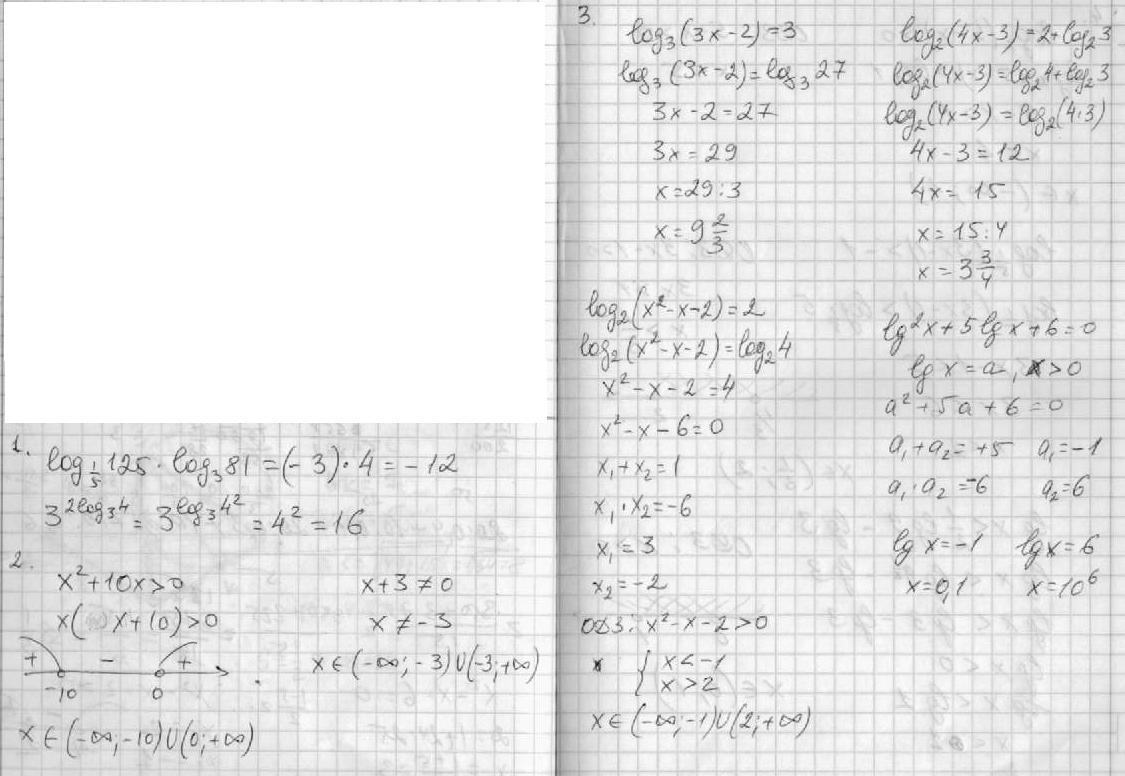 1.
log_{1/5} 125 · log₃ 81 = (-3) · 4 = -12
3^{2log₃4} = 3^{log₃4²} = 4² = 16
2.
x² + 10x > 0
x( x + 10) > 0
+ − +
-10 0
x ∈ (-∞; -10) ∪ (0; +∞)
x + 3 ≠ 0
x ≠ -3
x ∈ (-∞; -3) ∪ (-3; +∞)
3.
log₃(3x-2) = 3
log₃(3x-2) = log₃ 27
3x - 2 = 27
3x = 29
x = 29 : 3
x = 9 2/3
log₂(4x-3) = 2 + log₂ 3
log₂(4x-3) = log₂ 4 + log₂ 3
log₂(4x-3) = log₂(4·3)
4x - 3 = 12
4x = 15
x = 15 : 4
x = 3 3/4
log₂(x² - x - 2) = 2
log₂(x² - x - 2) = log₂ 4
x² - x - 2 = 4
x² - x - 6 = 0
x₁ + x₂ = 1
x₁ · x₂ = -6
x₁ = 3
x₂ = -2
ОДЗ: x² - x - 2 > 0
{ x < -1
x > 2
x ∈ (-∞; -1) ∪ (2; +∞)
lg²x + 5 lg x + 6 = 0
lg x = a, x > 0
a² + 5a + 6 = 0
a₁ + a₂ = +5 a₁ = -1
a₁ · a₂ = -6 a₂ = 6
lg x = -1 lg x = 6
x = 0,1 x = 10⁶